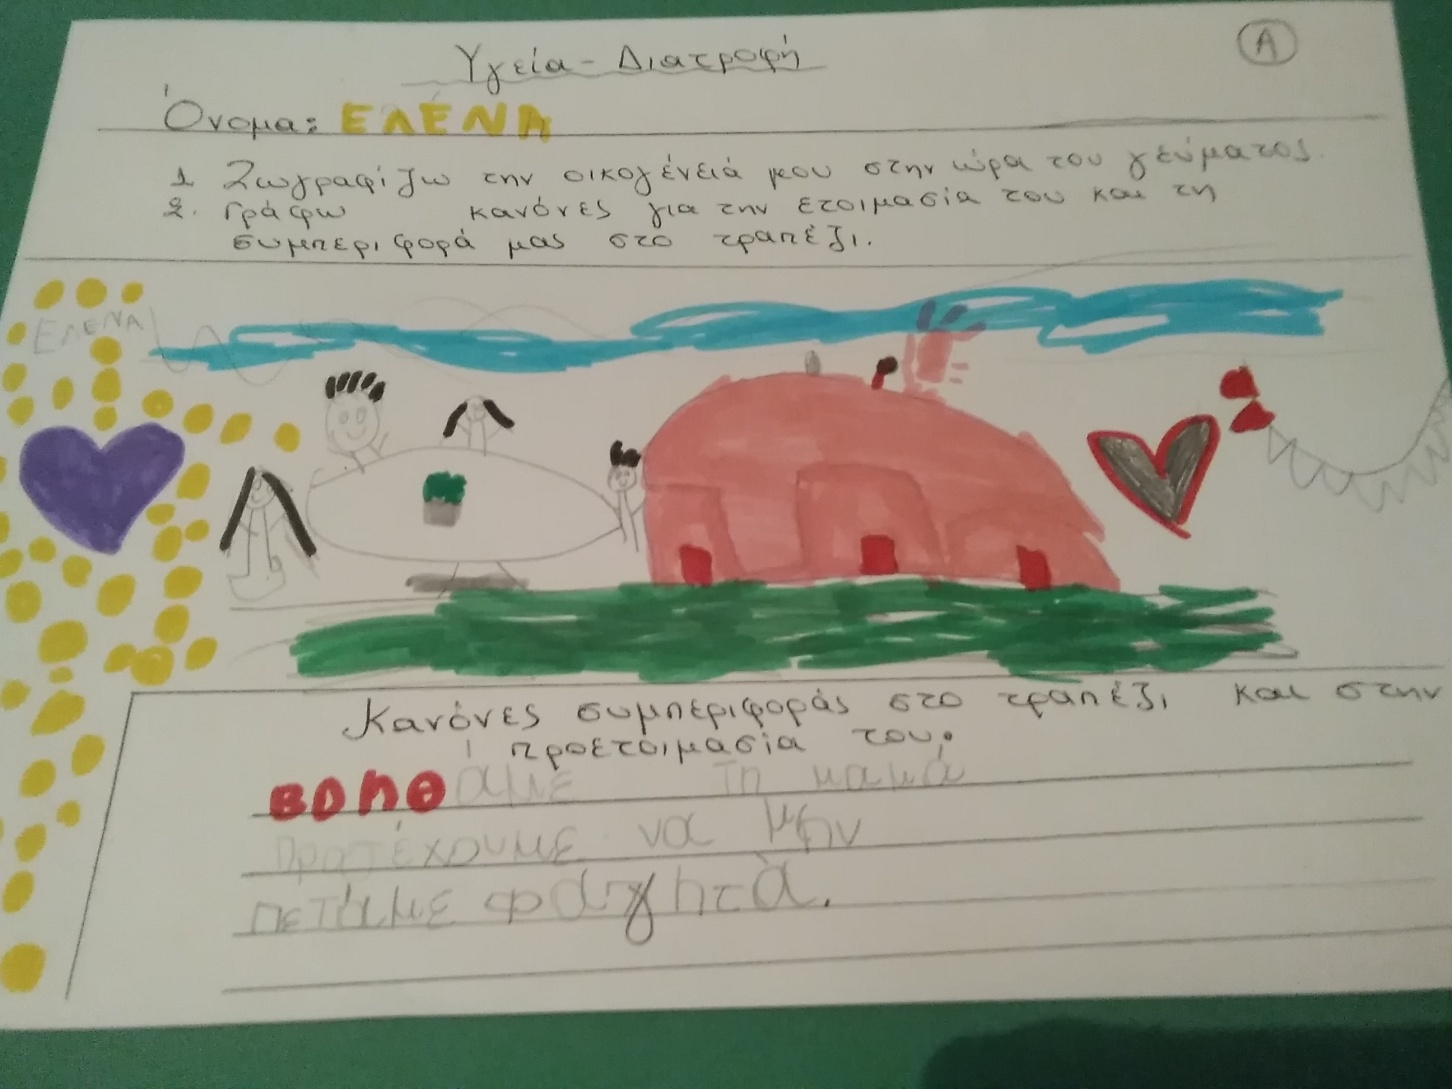 Υγεία - Διατροφή
Α
Όνομα: ΕΛΈΝΑ
1 Ζωγραφίζω την οικογένειά μου στην ώρα του γεύματος.
2. Γράφω κανόνες για την ετοιμασία του και τη
συμπεριφορά μας στο τραπέζι.
ΕΛΕΝΑ
Κανόνες συμπεριφοράς στο τραπέζι και στην
προετοιμασία του.
ΒΟΗΘάμε τη μαμά
προσέχουμε να μην
πετάμε φαγητά.